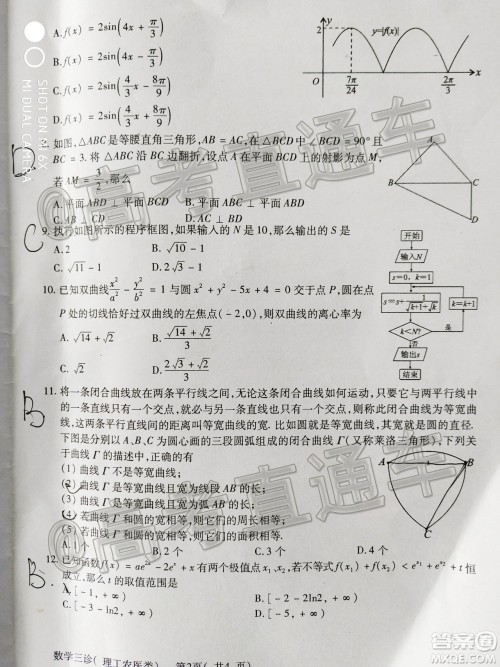 A. f(x) = 2sin(4x + π/3)
B. f(x) = 2sin(4x - π/3)
C. f(x) = 2sin(4/3 x - 8π/9)
D. f(x) = 2sin(4/3 x + 8π/9)
y
2
y=|f(x)|
O
7π/24
2π/3
x
D
如图, △ABC 是等腰直角三角形, AB = AC, 在 △BCD 中 ∠BCD = 90° 且
BC = 3. 将 △ABC 沿 BC 边翻折, 设点 A 在平面 BCD 上的射影为点 M,
若 AM = 3/2, 那么
A. 平面 ABD ⊥ 平面 BCD
B. 平面 ABC ⊥ 平面 ABD
C. AB ⊥ CD
D. AC ⊥ BD
A
B
C
D
C
9. 执行如图所示的程序框图, 如果输入的 N 是 10, 那么输出的 S 是
A. 2
B. √10 - 1
C. √11 - 1
D. 2√3 - 1
开始
输入N
s=0, k=1
s=s+1/(√(k+1)+√k)
k=k+1
k<N?
是
否
输出s
结束
10. 已知双曲线 x²/a² - y²/b² = 1 与圆 x² + y² - 5x + 4 = 0 交于点 P, 圆在点
P 处的切线恰好过双曲线的左焦点 (-2,0), 则双曲线的离心率为
A. √14 + √2
B. (√14 + √2)/3
C. √3 + √2
D. (2√3 + √2)/3
B
11. 将一条闭合曲线放在两条平行线之间, 无论这条闭合曲线如何运动, 只要它与两平行线中
的一条直线只有一个交点, 就必与另一条直线也只有一个交点, 则称此闭合曲线为等宽曲
线, 这两条平行直线间的距离叫等宽曲线的宽度. 比如圆就是等宽曲线, 其宽就是圆的直径.
下图是分别以 A、B、C 为圆心画的三段圆弧组成的闭合曲线 Γ (又称莱洛三角形), 下列关
于曲线 Γ 的描述中, 正确的有
(1) 曲线 Γ 不是等宽曲线;
(2) 曲线 Γ 是等宽曲线且宽为线段 AB 的长;
(3) 曲线 Γ 是等宽曲线且宽为弧 AB 的长;
(4) 在曲线 Γ 和圆的宽相等, 则它们的周长相等;
(5) 若曲线 Γ 和圆的宽相等, 则它们的面积相等.
A. 1 个
B. 2 个
C. 3 个
D. 4 个
A
B
C
B
12. 已知函数 f(x) = ae²ˣ - 2eˣ + x 有两个极值点 x₁, x₂, 若不等式 f(x₁) + f(x₂) < e^x₁ + e^x₂ + t 恒
成立, 那么 t 的取值范围是
A. [-1, +∞)
B. [-2 - 2ln2, +∞)
C. [-3 - ln2, +∞)
D. [-5, +∞)
数学三诊(理工农医类) 第2页(共4页)
MI DUAL CAMERA
@高考直通车
@高考直通车
@高考直通车